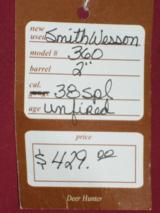 new
used Smith Wesson
model # 360
barrel 2"
cal. .38 spl
age unfired
price
$429.00
Deer Hunter